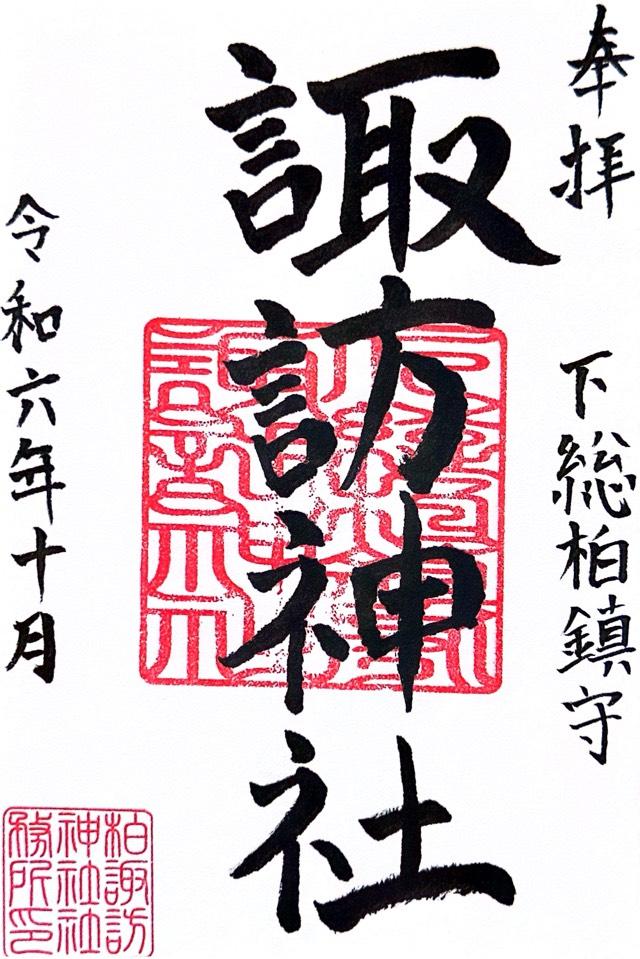 奉拝
下総柏鎮守
諏訪神社
令和六年十月
柏諏訪
神社社
務所印